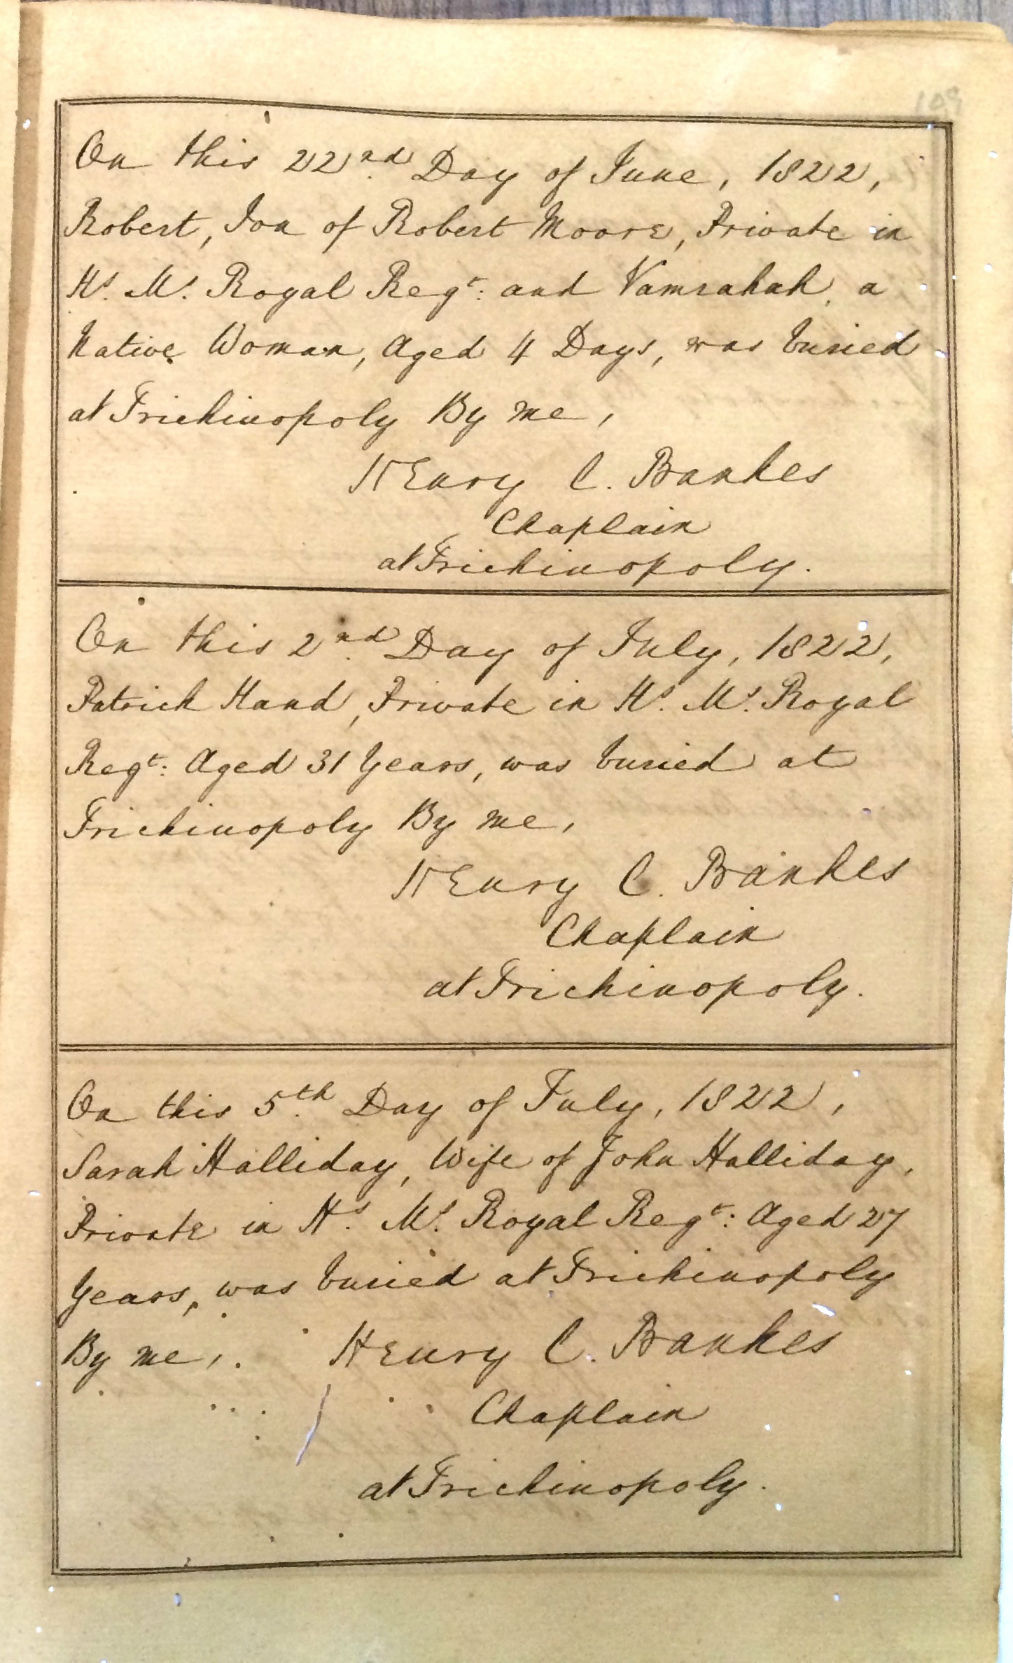 On this 22nd Day of June, 1822,
Robert, Son of Robert Moore, Private in
Hs. Ms. Royal Regt: and Vamrahah a
Native Woman, Aged 4 Days, was buried
at Trichinopoly By me,
Henry C. Bankes
Chaplain
at Trichinopoly.
On this 2nd Day of July, 1822,
Patrick Hand, Private in Hs. Ms. Royal
Regt: Aged 31 Years, was buried at
Trichinopoly By me,
Henry C. Bankes
Chaplain
at Trichinopoly.
On this 5th Day of July, 1822,
Sarah Halliday, Wife of John Halliday,
Private in Hs. Ms. Royal Regt: Aged 27
Years, was buried at Trichinopoly
By me, Henry C. Bankes
Chaplain
at Trichinopoly.